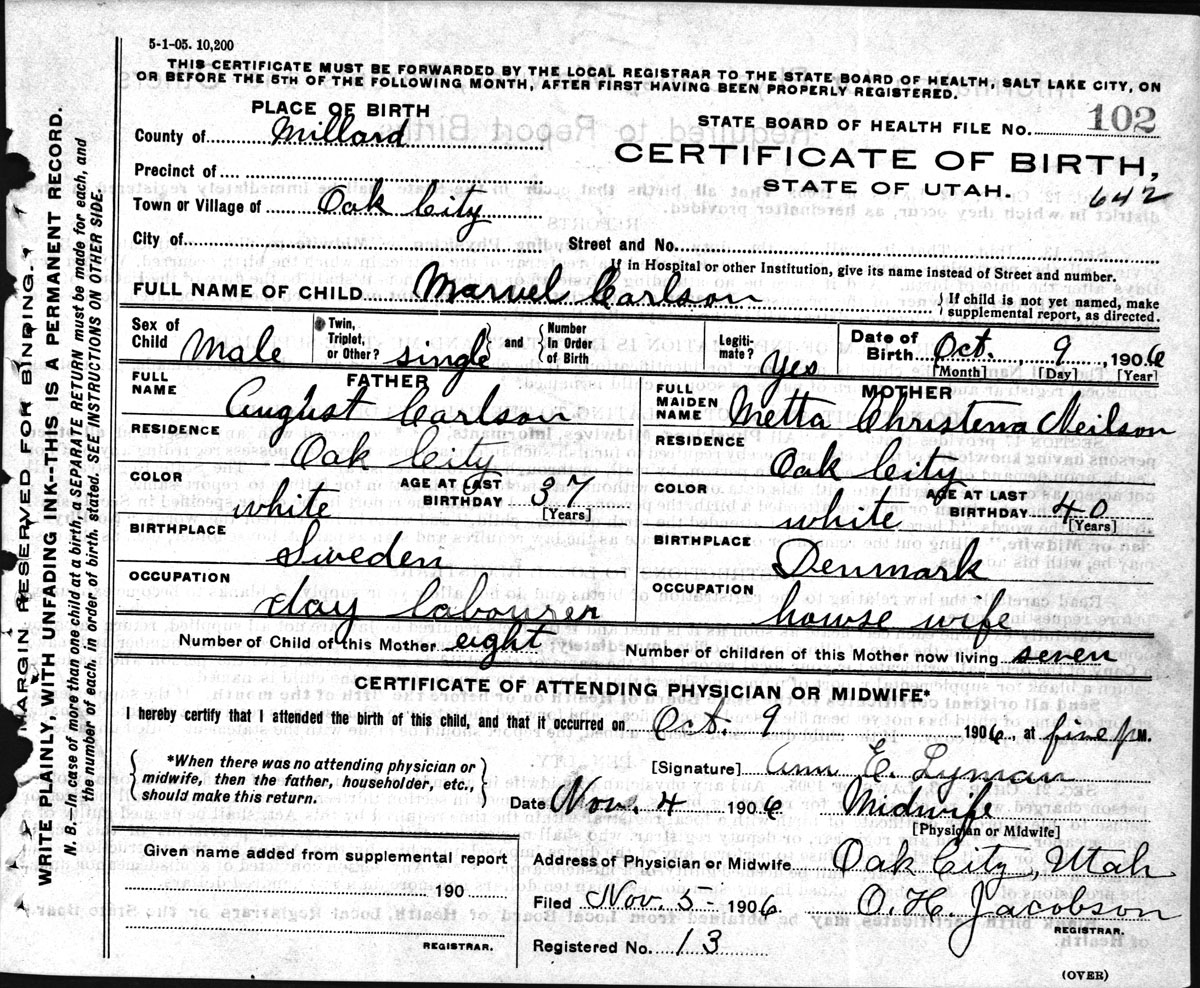 5-1-05. 10,200
THIS CERTIFICATE MUST BE FORWARDED BY THE LOCAL REGISTRAR TO THE STATE BOARD OF HEALTH, SALT LAKE CITY, ON
OR BEFORE THE 5TH OF THE FOLLOWING MONTH, AFTER FIRST HAVING BEEN PROPERLY REGISTERED.
PLACE OF BIRTH
STATE BOARD OF HEALTH FILE NO. 102
County of Millard
CERTIFICATE OF BIRTH,
Precinct of
STATE OF UTAH. 642
Town or Village of Oak City
City of Street and No.
If in Hospital or other Institution, give its name instead of Street and number.
FULL NAME OF CHILD Marvel Carlson { If child is not yet named, make supplemental report, as directed.
Sex of Child Male Twin, Triplet, or Other? single and { Number In Order of Birth Legiti- mate? Yes Date of Birth Oct. 9, 1906
[Month] [Day] [Year]
FATHER MOTHER
FULL NAME August Carlson FULL MAIDEN NAME Metta Christena Neilson
RESIDENCE Oak City RESIDENCE Oak City
COLOR white AGE AT LAST BIRTHDAY 37 [Years] COLOR white AGE AT LAST BIRTHDAY 40 [Years]
BIRTHPLACE Sweden BIRTHPLACE Denmark
OCCUPATION day labourer OCCUPATION house wife
Number of Child of this Mother eight Number of children of this Mother now living seven
CERTIFICATE OF ATTENDING PHYSICIAN OR MIDWIFE*
I hereby certify that I attended the birth of this child, and that it occurred on Oct. 9 1906, at five P M.
{ *When there was no attending physician or
midwife, then the father, householder, etc.,
should make this return. }
[Signature] Ann E. Lyman
Date Nov. 4 1906 Midwife
[Physician or Midwife]
Given name added from supplemental report
190
REGISTRAR.
Address of Physician or Midwife Oak City, Utah
Filed Nov 5 - 1906 O. H. Jacobson
REGISTRAR.
Registered No. 13
(OVER)
MARGIN RESERVED FOR BINDING.
WRITE PLAINLY, WITH UNFADING INK--THIS IS A PERMANENT RECORD.
N. B. In case of more than one child at a birth, a SEPARATE RETURN must be made for each, and
the number of each, in order of birth, stated. SEE INSTRUCTIONS ON OTHER SIDE.